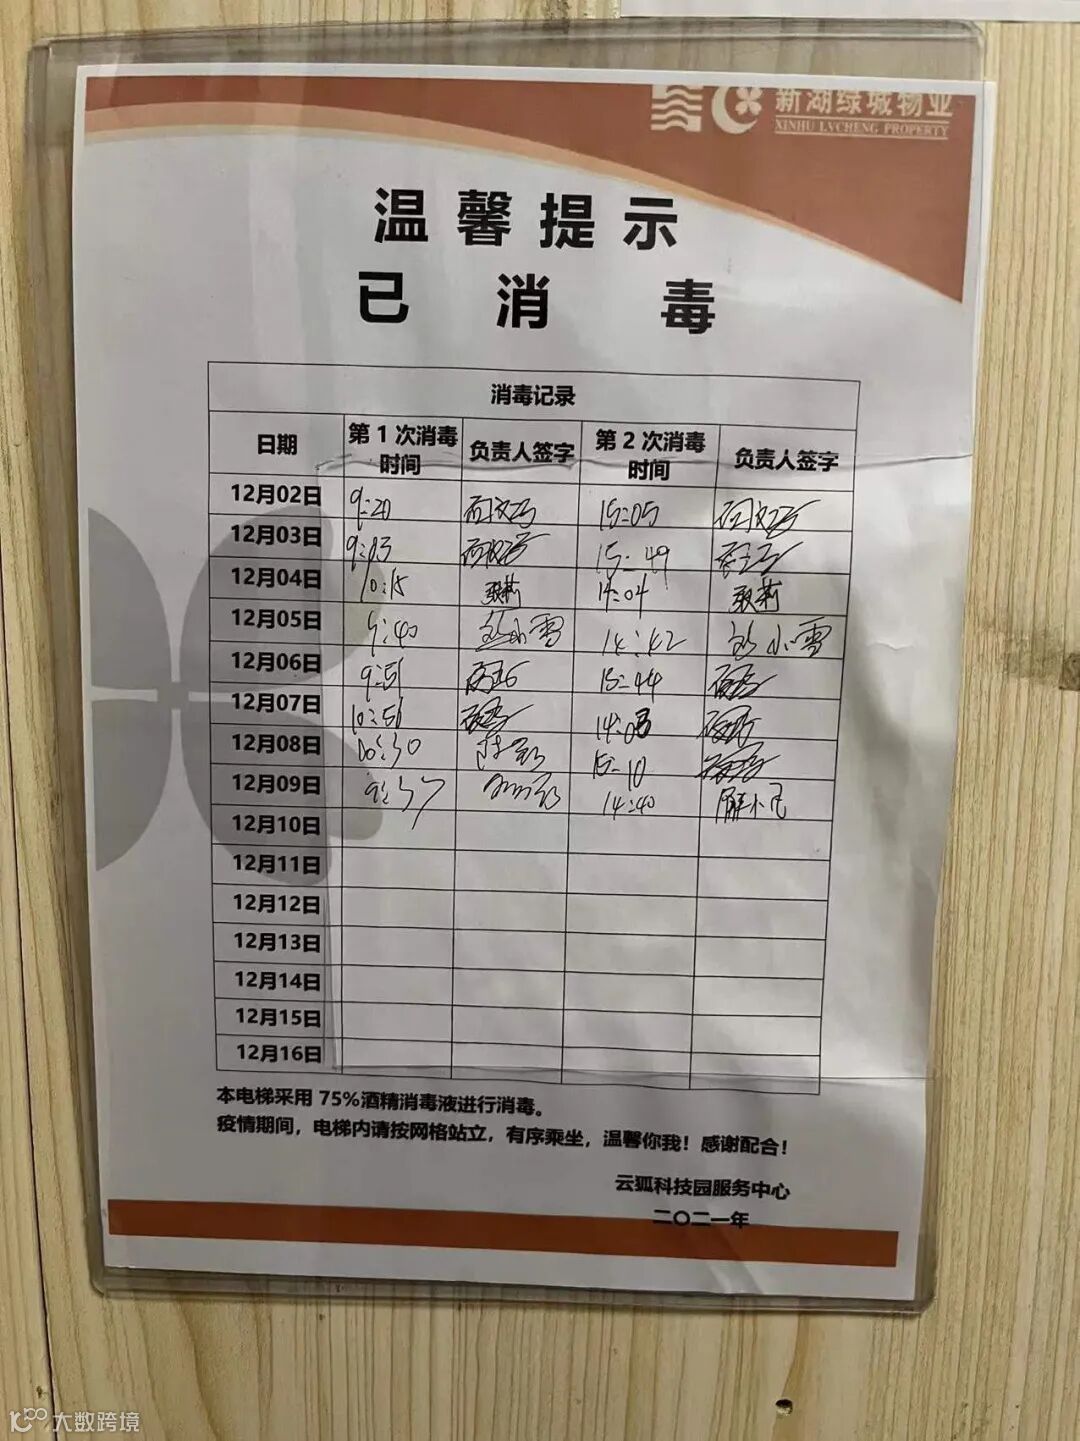 新湖绿城物业
XINHU LVCHENG PROPERTY
温馨提示
已消毒
消毒记录
日期 第1次消毒时间 负责人签字 第2次消毒时间 负责人签字
12月02日 9:20 15:05
12月03日 15:49
12月04日 10:15 14:04
12月05日 9:40 14:42
12月06日 9:51 15:44
12月07日 10:56
12月08日 10:30 15:10
12月09日 9:37 14:40
12月10日
12月11日
12月12日
12月13日
12月14日
12月15日
12月16日
本电梯采用 75%酒精消毒液进行消毒。
疫情期间，电梯内请按网格站立，有序乘坐，温馨你我！感谢配合！
云狐科技园服务中心
二〇二一年
大数跨境